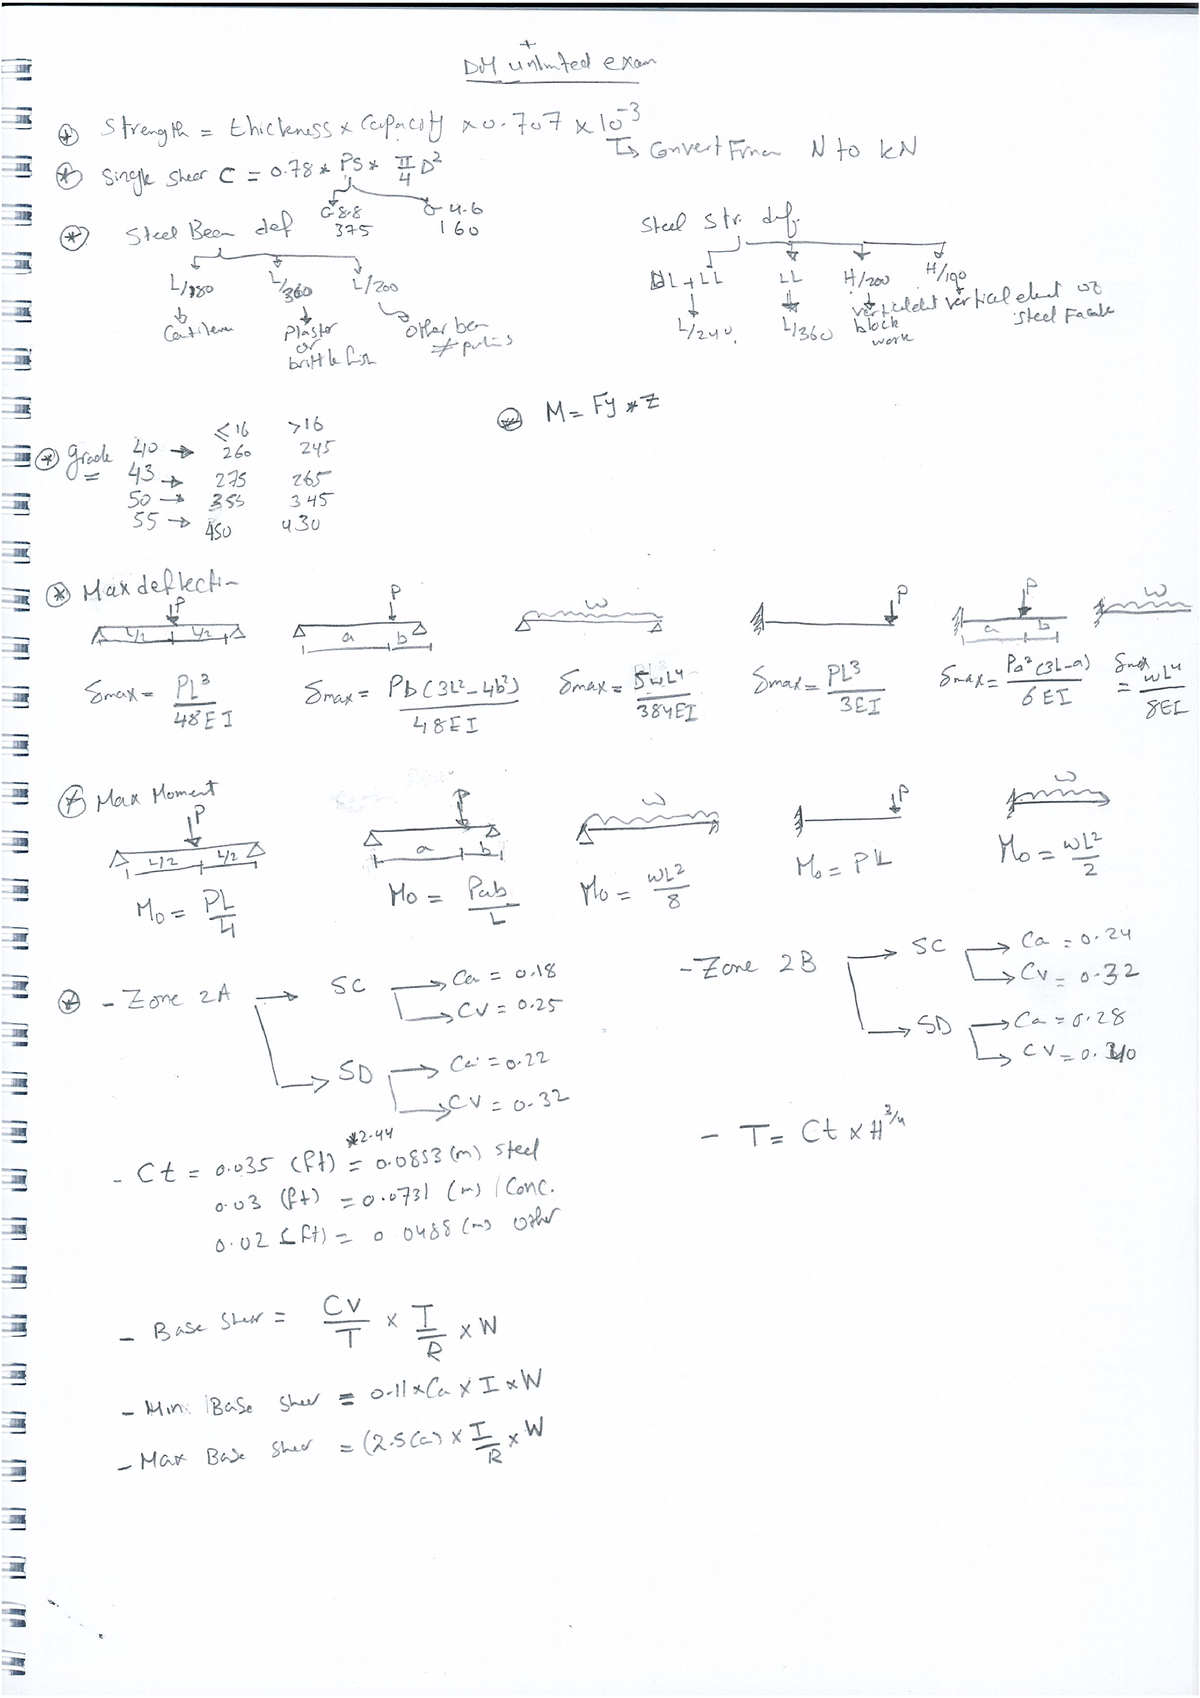 +
DM unlimted exam
* Strength = thickness × Capacity × 0.707 × 10^-3
↳ Convert From N to kN
* Single Shear C = 0.78 * PS * π/4 D²
G 8.8 G 4.6
375 160
* Steel Beam def
L/180 L/360 L/200
Cantilever Plaster or brittle fish Other ben ≠ purlins
Steel str. def.
DL+LL LL H/200 H/190
L/240. L/360 block work vertical elent or steel Facade
≤16 >16
* grade 40 → 260 245
43 → 275 265
50 → 355 345
55 → 450 430
* M = Fy * Z
* Max deflecti-
P P w P P w
L/2 L/2 a b a b
δmax = PL³/48EI
δmax = Pb(3L²-4b²)/48EI
δmax = 5wL⁴/384EI
δmax = PL³/3EI
δmax = Pa²(3L-a)/6EI
δmax = wL⁴/8EI
* Max Moment
P P w P w
L/2 L/2 a b
Mo = PL/4
Mo = Pab/L
Mo = wL²/8
Mo = PL
Mo = wL²/2
* - Zone 2A → SC → Ca = 0.18
→ CV = 0.25
→ SD → Ca = 0.22
→ CV = 0.32
- Zone 2B → SC → Ca = 0.24
→ CV = 0.32
→ SD → Ca = 0.28
→ CV = 0.40
*2.44
- Ct = 0.035 (ft) = 0.0853 (m) steel
0.03 (ft) = 0.0731 (m) Conc.
0.02 (ft) = 0.0488 (m) other
- T = Ct × H^3/4
- Base Shear = CV/T × I/R × W
- Min Base Shear = 0.11 × Ca × I × W
- Max Base Shear = (2.5 Ca) × I/R × W